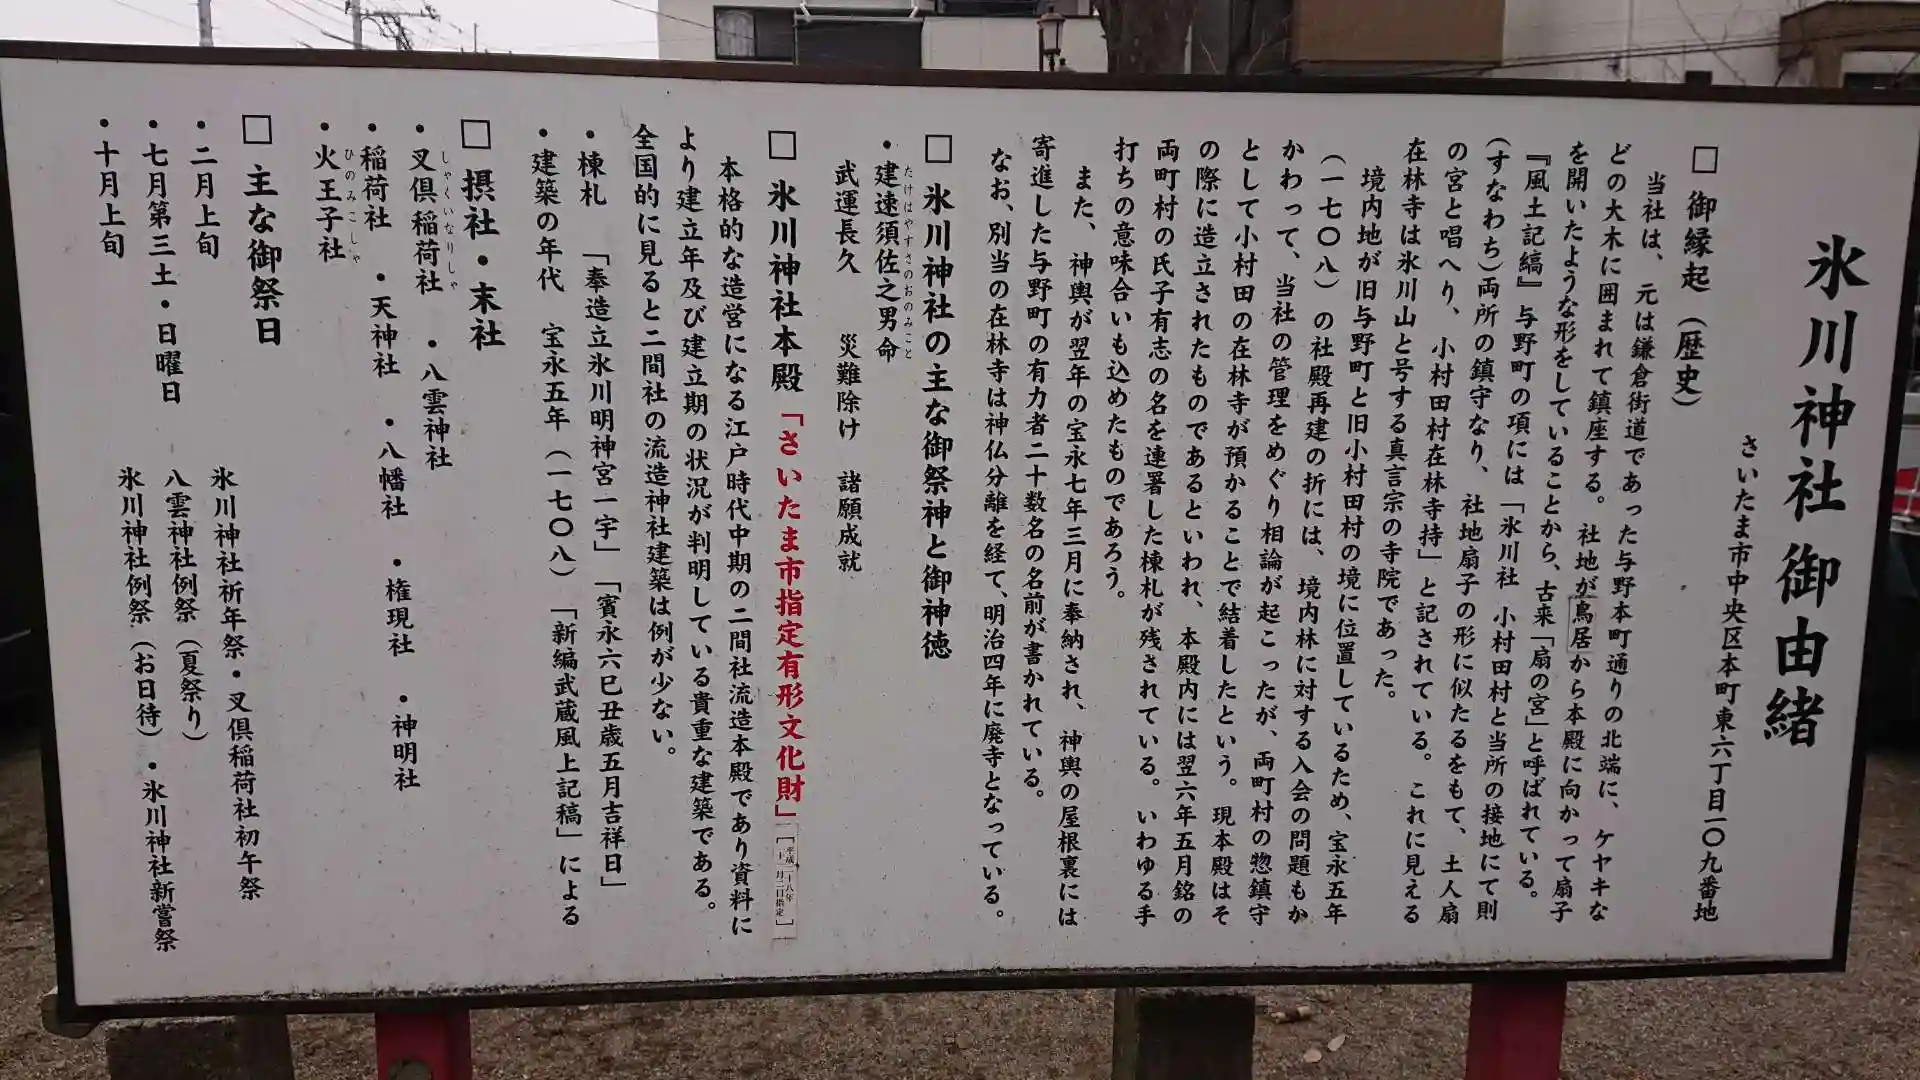 氷川神社 御由緒
さいたま市中央区本町東六丁目一〇九番地
□ 御縁起（歴史）
当社は、元は鎌倉街道であった与野本町通りの北端に、ケヤキな
どの大木に囲まれて鎮座する。社地が鳥居から本殿に向かって扇子
を開いたような形をしていることから、古来「扇の宮」と呼ばれている。
『風土記縞』与野町の項には「氷川社 小村田村と当所の接地にて則
(すなわち)両所の鎮守なり、社地扇子の形に似たるをもて、土人扇
の宮と唱へり、小村田村在林寺持」と記されている。これに見える
在林寺は氷川山と号する真言宗の寺院であった。
境内地が旧与野町と旧小村田村の境に位置しているため、宝永五年
（一七〇八）の社殿再建の折には、境内林に対する入会の問題もか
かわって、当社の管理をめぐり相論が起こったが、両町村の惣鎮守
として小村田の在林寺が預かることで結着したという。現本殿はそ
の際に造立されたものであるといわれ、本殿内には翌六年五月銘の
両町村の氏子有志の名を連署した棟札が残されている。いわゆる手
打ちの意味合いも込めたものであろう。
また、神輿が翌年の宝永七年三月に奉納され、神輿の屋根裏には
寄進した与野町の有力者二十数名の名前が書かれている。
なお、別当の在林寺は神仏分離を経て、明治四年に廃寺となっている。
□ 氷川神社の主な御祭神と御神徳
・建速須佐之男命
たけはやすさのおのみこと
武運長久 災難除け 諸願成就
□ 氷川神社本殿「さいたま市指定有形文化財」
本格的な造営になる江戸時代中期の二間社流造本殿であり資料に
より建立年及び建立期の状況が判明している貴重な建築である。
全国的に見ると二間社の流造神社建築は例が少ない。
・棟札 「奉造立氷川明神宮一宇」「賓永六巳丑歳五月吉祥日」
・建築の年代 宝永五年（一七〇八）「新編武蔵風土記稿」による
□ 摂社・末社
・叉倶稲荷社 ・八雲神社
しゃくいなりしゃ
・稲荷社 ・天神社 ・八幡社 ・権現社 ・神明社
・火王子社
ひのみこしゃ
□ 主な御祭日
・二月上旬 氷川神社祈年祭・叉倶稲荷社初午祭
・七月第三土・日曜日 八雲神社例祭（夏祭り）
・十月上旬 氷川神社例祭（お日待）・氷川神社新嘗祭